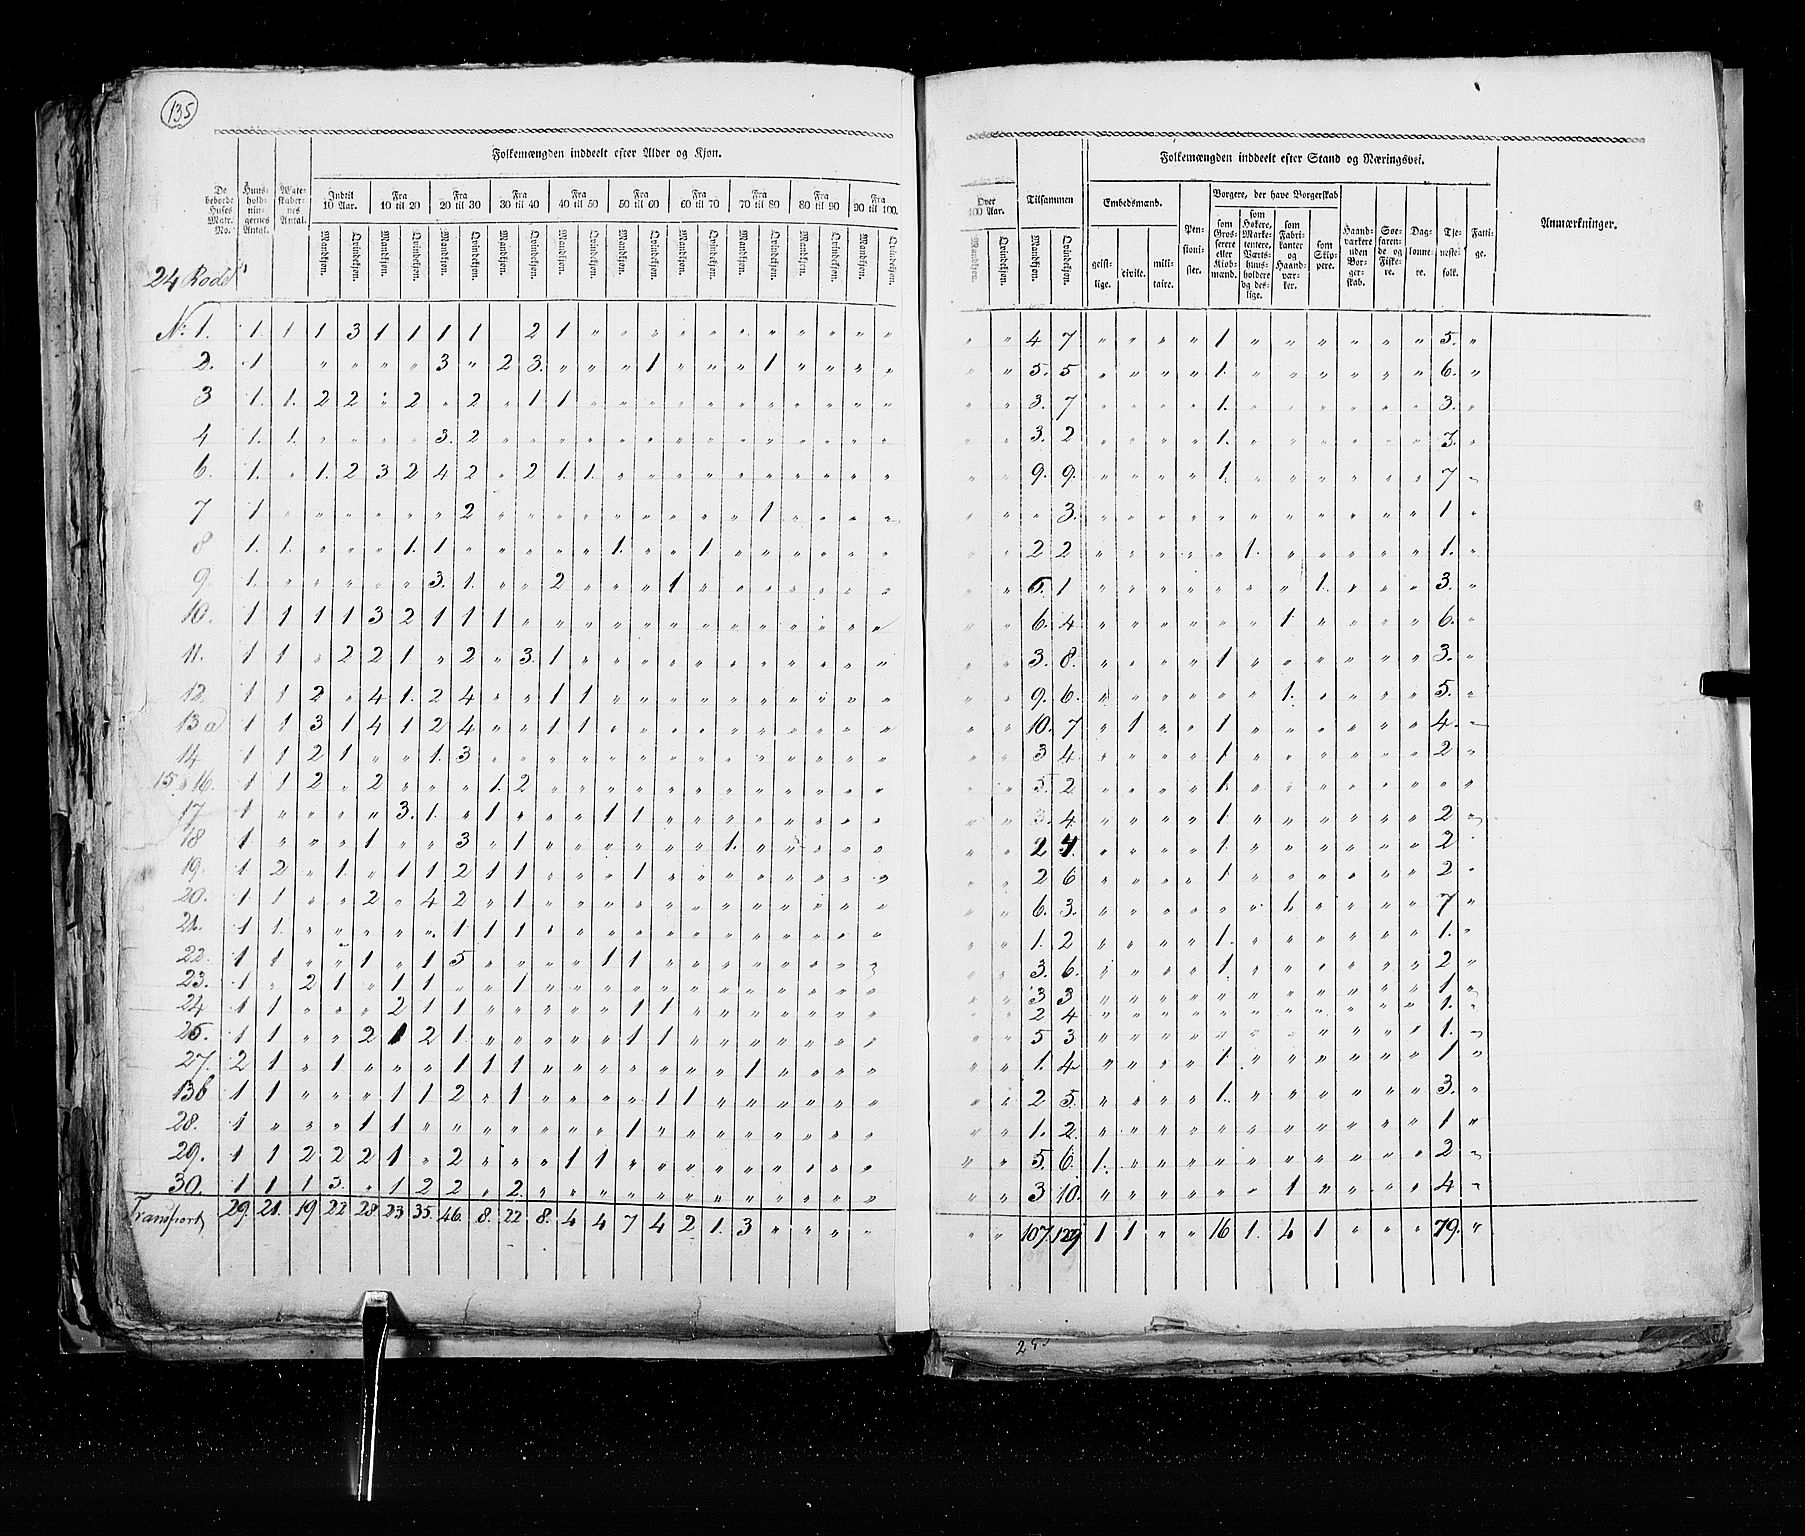 135
Folkemængden inddeelt efter Alder og Kjøn.
De beboede Huses Matr. No. | Huus-holdningernes Antal. | Ægteskabernes Antal. | Indtil 10 Aar. | Fra 10 til 20 | Fra 20 til 30 | Fra 30 til 40 | Fra 40 til 50 | Fra 50 til 60 | Fra 60 til 70 | Fra 70 til 80 | Fra 80 til 90 | Fra 90 til 100.
Mandkjøn. Qvindekjøn. Mandkjøn. Qvindekjøn. Mandkjøn. Qvindekjøn. Mandkjøn. Qvindekjøn. Mandkjøn. Qvindekjøn. Mandkjøn. Qvindekjøn. Mandkjøn. Qvindekjøn. Mandkjøn. Qvindekjøn. Mandkjøn. Qvindekjøn. Mandkjøn. Qvindekjøn.
24 Rode
No 1. 1. 1 1 3 1 1 1 1 2 1 " " " " " " " " " " "
2. 1 " " " " 3 " 2 3. " " " 1 " " " 1 " " " "
3 1. 1. 2 2 " 2 " 2 " 1 1 " " " " " " " " " " "
4 1. 1. " " " " 3. 2 " " " " " " " " " " " " " "
6. 1. " 1. 2 3 2 4 2 " 2 1. 1. " " " " " " " " " "
7 1 " " " " " " 2 " " " " " " " " " 1 " " " "
8 1. 1. " " " 1. 1 " " " " " 1. " " 1 " " " " " "
9. 1. " " " " " 3. 1. " " 2 " " " 1 " " " " " " "
10. 1 1 1 1 3 2 1 1 1 " " " " " " " " " " " " "
11. 1 1 " 2 2 1 " 2 " 3. 1 " " " " " " " " " " "
12. 1 1 2 " 4 1. 2 4 " " 1 1 " " " " " " " " " "
13 a 1 1 3 1 4 1 2 4 " " 1 1 " " " " " " " " " "
14 1 1 2 1 " " 1. 3 " " " " " " " " " " " " " "
15 & 16. 1 1 2 " 2 " " " 1. 2 " " " " " " " " " " " "
17 1 " " " " 3. 1. " 1 " " " 1 1 " " " " " " " "
18 1. " " " 1 " " 3 " 1 " " " " " " 1. " " " " "
19. 1 2 " 1. " 1 1 2 1 1 " " " 1 " " " " " " " "
20. 1 1 " " 2 " 4 2 " 1 " " " " " " " " " " " "
21. 1 1. " " " " " 1 1 1 " " " " " " " " " " " "
22. 1 1 " " 1 " 1 5 " " " " 1 1 " " " " " " " "
23. 1 " 2 1 " 1 1 " " 1 " " " " " " " " " " " "
24 1 1 " " " 2 1 1 " " " " " 1 1 " " " " " " "
25. 1 1 " " 2 1 2 1. " " " " " 1 1 " " " " " " "
27. 2 1 " 1 " " " 1 1 1 " " " " " " " 1 " " " "
13b 1 1 " " " 1 1 2 " 1 " " " " 1 1 " " " " " "
28. 1 " " " 1 1 " " " " " " " 1 " " " " " " " "
29. 1 1 2 2 2 1 " 2 " " " 1 1 " " " " " " " " "
30. 1 1 1 3. " 1 2 2 " 2. " " " " " " " " " " " "
Transport 29. 21. 19 22 28. 23 35. 46. 8. 22 8. 4 4 7 4 2 1. 3 " " " "
Folkemængden inddeelt efter Stand og Næringsvei.
Over 100 Aar. | Tilsammen | Embedsmænd. | Pensionister. | Borgere, der have Borgerskab | Haandværkere uden Borgerskab. | Søefarende og Fiskere. | Daglønnere. | Tjenestefolk. | Fattige. | Anmærkninger.
Mandkjøn. Qvindekjøn. Mandkjøn. Qvindekjøn. geistlige. civile. militaire. som Grosserere eller Kjøbmænd. som Høkere, Marketentere, Værtshuusholdere og deslige. som Fabrikanter og Haandværker. som Skippere.
" " 4 7 " " " " 1 " " " " " " 5. "
" " 5. 5 " " " " 1. " " " " " " 6. "
" " 3. 7 " " " " 1. " " " " " " 3. "
" " 3. 2 " " " " 1. " " " " " " 3. "
" " 9. 9. " " " " 1. " " " " " " 7 "
" " " 3. " " " " " " " " " " " 1 "
" " 2 2 " " " " " 1. " " " " " 1. "
" " 5. 1 " " " " " " " 1. " " " 3. "
" " 6. 4 " " " " " " 1. " " " " 6. "
" " 3. 8. " " " " 1 " " " " " " 3. "
" " 9. 6. " " " " " " 1. " " " " 5. "
" " 10. 7 " 1 " " 1 " " " " " " 4. "
" " 3 4. " " " " 1 " " " " " " 2 "
" " 5. 2 " " " " 1. " " " " " " " "
" " 3. 4 " " " " 1. " " " " " " 2 "
" " 2 4. " " " " 1. " " " " " " 2 "
" " 2 6 " " " " 1 " " " " " " 2 "
" " 6. 3. " " " " " " 1. " " " " 7 "
" " 1. 2 " " " " 1. " " " " " " 1. "
" " 3. 6. " " " " 1. " " " " " " 2 "
" " 3 3 " " " " " " " " " " " 1 "
" " 2 4 " " " " " " " " " " " 1. "
" " 5 3 " " " " " " " " " " " 1. "
" " 1. 4 " " " " 1 " " " " " " 1 "
" " 2 5. " " " " 1. " " " " " " 3. "
" " 1. 2. " " " " " " " " " " " 1 "
" " 5. 6. 1. " " " " " " " " " " 2 "
" " 3 10. " " " " " " 1 " " " " 4 "
" " 107. 129 1 1 " " 16 1. 4 1 " " " 79. "